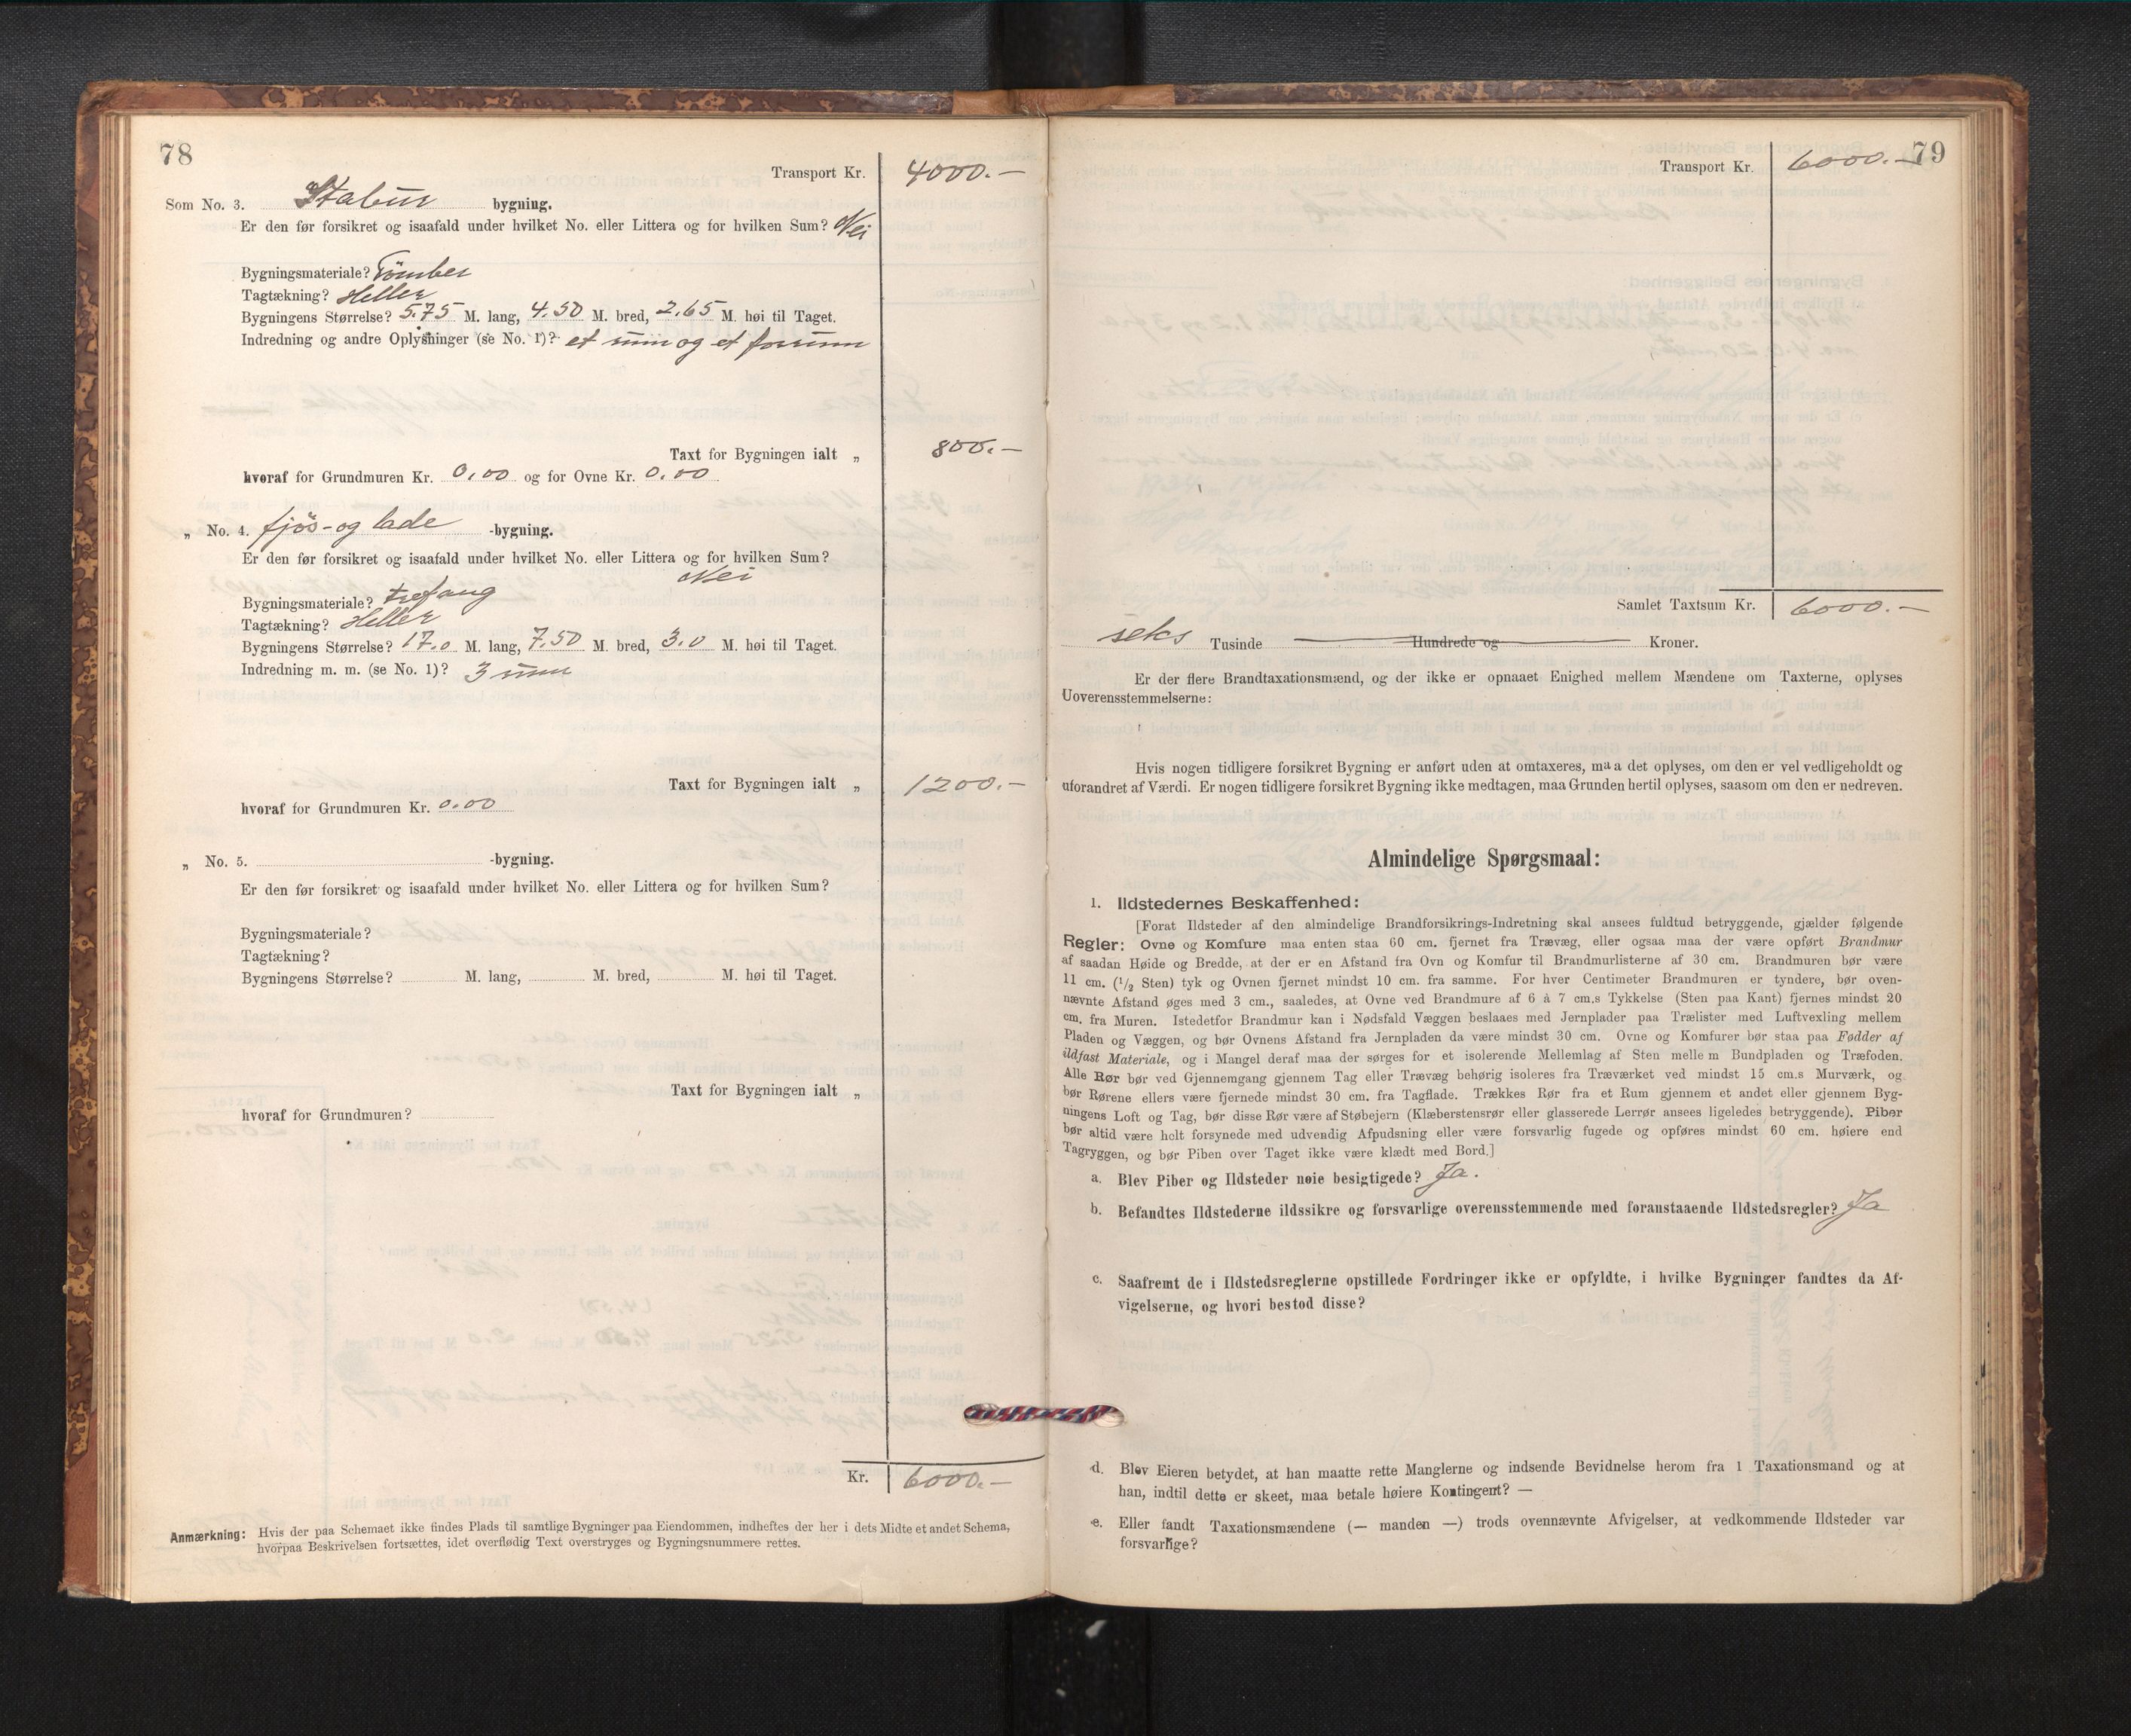 78
Transport Kr. 4000.—
Som No. 3. Stabur bygning.
Er den før forsikret og isaafald under hvilket No. eller Littera og for hvilken Sum? Nei
Bygningsmateriale? Tömber
Tagtækning? Heller
Bygningens Størrelse? 5.75 M. lang, 4.50 M. bred, 2.65 M. høi til Taget.
Indredning og andre Oplysninger (se No. 1)? et rum og et forrum
Taxt for Bygningen ialt „ 800.—
hvoraf for Grundmuren Kr. 0.00 og for Ovne Kr. 0.00
„ No. 4. fjös- og lade -bygning.
Er den før forsikret og isaafald under hvilket No. eller Littera og for hvilken Sum?
Nei
Bygningsmateriale? trefang
Tagtækning? Heller
Bygningens Størrelse? 17.0 M. lang, 7.50 M. bred, 3.0 M. høi til Taget.
Indredning m. m. (se No. 1)? 3 rum
Taxt for Bygningen ialt „ 1200.—
hvoraf for Grundmuren Kr. 0.00
„ No. 5. -bygning.
Er den før forsikret og isaafald under hvilket No. eller Littera og for hvilken Sum?
Bygningsmateriale?
Tagtækning?
Bygningens Størrelse? M. lang, M. bred, M. høi til Taget.
Taxt for Bygningen ialt „
hvoraf for Grundmuren?
Kr. 6000.—
Anmærkning: Hvis der paa Schemaet ikke findes Plads til samtlige Bygninger paa Eiendommen, indheftes der her i dets Midte et andet Schema,
hvorpaa Beskrivelsen fortsættes, idet overflødig Text overstryges og Bygningsnummere rettes.
79
Transport Kr. 6000.—
Samlet Taxtsum Kr. 6000.—
seks Tusinde Hundrede og Kroner.
Er der flere Brandtaxationsmænd, og der ikke er opnaaet Enighed mellem Mændene om Taxterne, oplyses
Uoverensstemmelserne:
Hvis nogen tidligere forsikret Bygning er anført uden at omtaxeres, maa det oplyses, om den er vel vedligeholdt og
uforandret af Værdi. Er nogen tidligere forsikret Bygning ikke medtagen, maa Grunden hertil oplyses, saasom om den er nedreven.
Almindelige Spørgsmaal:
1. Ildstedernes Beskaffenhed:
[Forat Ildsteder af den almindelige Brandforsikrings-Indretning skal ansees fuldtud betryggende, gjælder følgende
Regler: Ovne og Komfure maa enten staa 60 cm. fjernet fra Trævæg, eller ogsaa maa der være opført Brandmur
af saadan Høide og Bredde, at der er en Afstand fra Ovn og Komfur til Brandmurlisterne af 30 cm. Brandmuren bør være
11 cm. (1/2 Sten) tyk og Ovnen fjernet mindst 10 cm. fra samme. For hver Centimeter Brandmuren er tyndere, bør oven-
nævnte Afstand øges med 3 cm., saaledes, at Ovne ved Brandmure af 6 à 7 cm.s Tykkelse (Sten paa Kant) fjernes mindst 20
cm. fra Muren. Istedetfor Brandmur kan i Nødsfald Væggen beslaaes med Jernplader paa Trælister med Luftvexling mellem
Pladen og Væggen, og bør Ovnens Afstand fra Jernpladen da være mindst 30 cm. Ovne og Komfurer bør staa paa Fødder af
ildfast Materiale, og i Mangel deraf maa der sørges for et isolerende Mellemlag af Sten mellem Bundpladen og Træfoden.
Alle Rør bør ved Gjennemgang gjennem Tag eller Trævæg behørig isoleres fra Træværket ved mindst 15 cm.s Murværk, og
bør Rørene ellers være fjernede mindst 30 cm. fra Tagflade. Trækkes Rør fra et Rum gjennem et andet eller gjennem Byg-
ningens Loft og Tag, bør disse Rør være af Støbejern (Klæberstensrør eller glasserede Lerrør ansees ligeledes betryggende). Piber
bør altid være helt forsynede med udvendig Afpudsning eller være forsvarlig fugede og opføres mindst 60 cm. høiere end
Tagryggen, og bør Piben over Taget ikke være klædt med Bord.]
a. Blev Piber og Ildsteder nøie besigtigede? Ja.
b. Befandtes Ildstederne ildssikre og forsvarlige overensstemmende med foranstaaende Ildstedsregler? Ja
c. Saafremt de i Ildstedsreglerne opstillede Fordringer ikke er opfyldte, i hvilke Bygninger fandtes da Af-
vigelserne, og hvori bestod disse?
d. Blev Eieren betydet, at han maatte rette Manglerne og indsende Bevidnelse herom fra 1 Taxationsmand og at
han, indtil dette er skeet, maa betale høiere Kontingent? —
e. Eller fandt Taxationsmændene (— manden —) trods ovennævnte Afvigelser, at vedkommende Ildsteder var
forsvarlige?